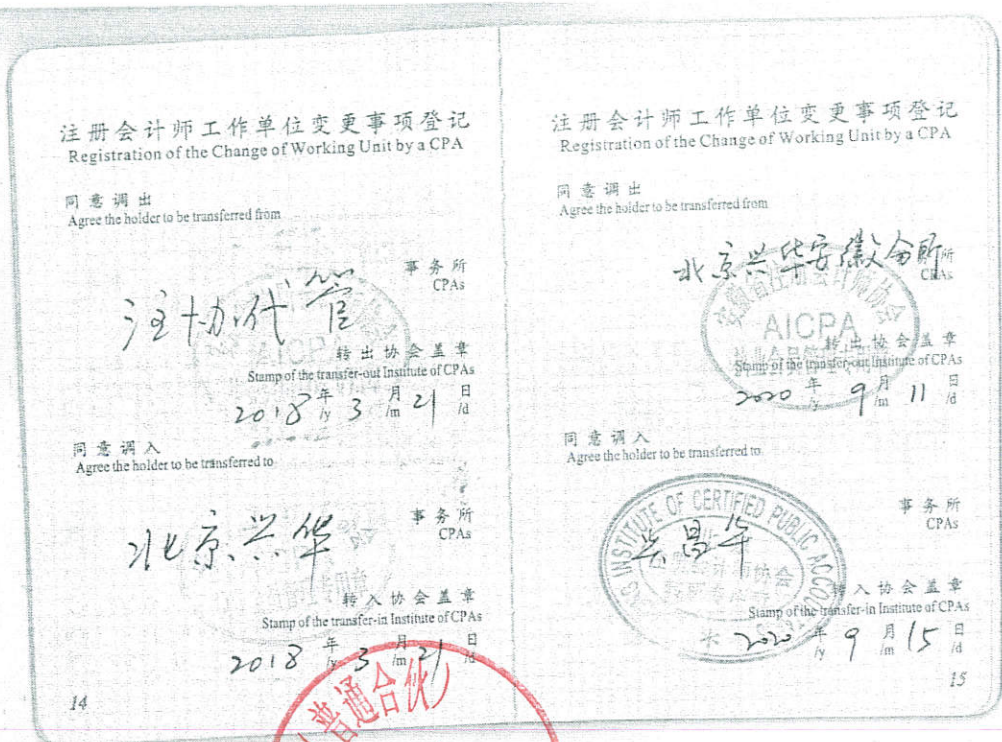 注册会计师工作单位变更事项登记
Registration of the Change of Working Unit by a CPA
同意调出
Agree the holder to be transferred from
注协代管
事务所
CPAs
转出协会盖章
Stamp of the transfer-out Institute of CPAs
2018 年 3 月 21 日
/y /m /d
同意调入
Agree the holder to be transferred to
北京兴华
事务所
CPAs
转入协会盖章
Stamp of the transfer-in Institute of CPAs
2018 年 3 月 21 日
/y /m /d
14
注册会计师工作单位变更事项登记
Registration of the Change of Working Unit by a CPA
同意调出
Agree the holder to be transferred from
北京兴华安徽分所
事务所
CPAs
安徽省注册会计师协会
AICPA
转出协会盖章
Stamp of the transfer-out Institute of CPAs
2020 年 9 月 11 日
/y /m /d
同意调入
Agree the holder to be transferred to
INSTITUTE OF CERTIFIED PUBLIC ACCOU
兴昌华
事务所
CPAs
转入协会盖章
Stamp of the transfer-in Institute of CPAs
2020 年 9 月 15 日
/y /m /d
15
普通合伙)